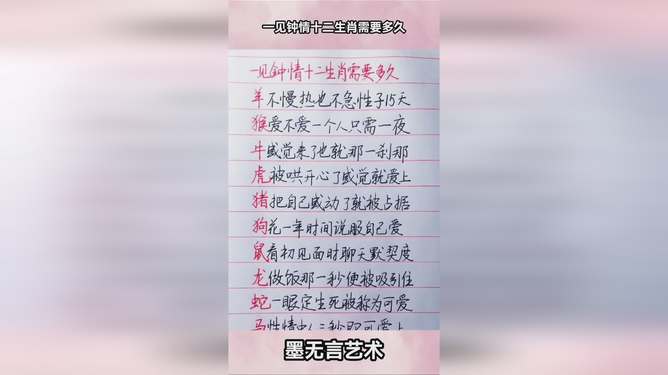 一见钟情十二生肖需要多久
一见钟情十二生肖需要多久
羊不慢热也不急性子15天
猴爱不爱一个人只需一夜
牛感觉来了也就那一刹那
虎被哄开心了感觉就爱上
猪把自己感动了就被占据
狗花一年时间说服自己爱
鼠看初见面时聊天默契度
龙做饭那一秒便被吸引住
蛇一眼定生死被称为可爱
马性情中人三秒即可爱上
墨无言艺术